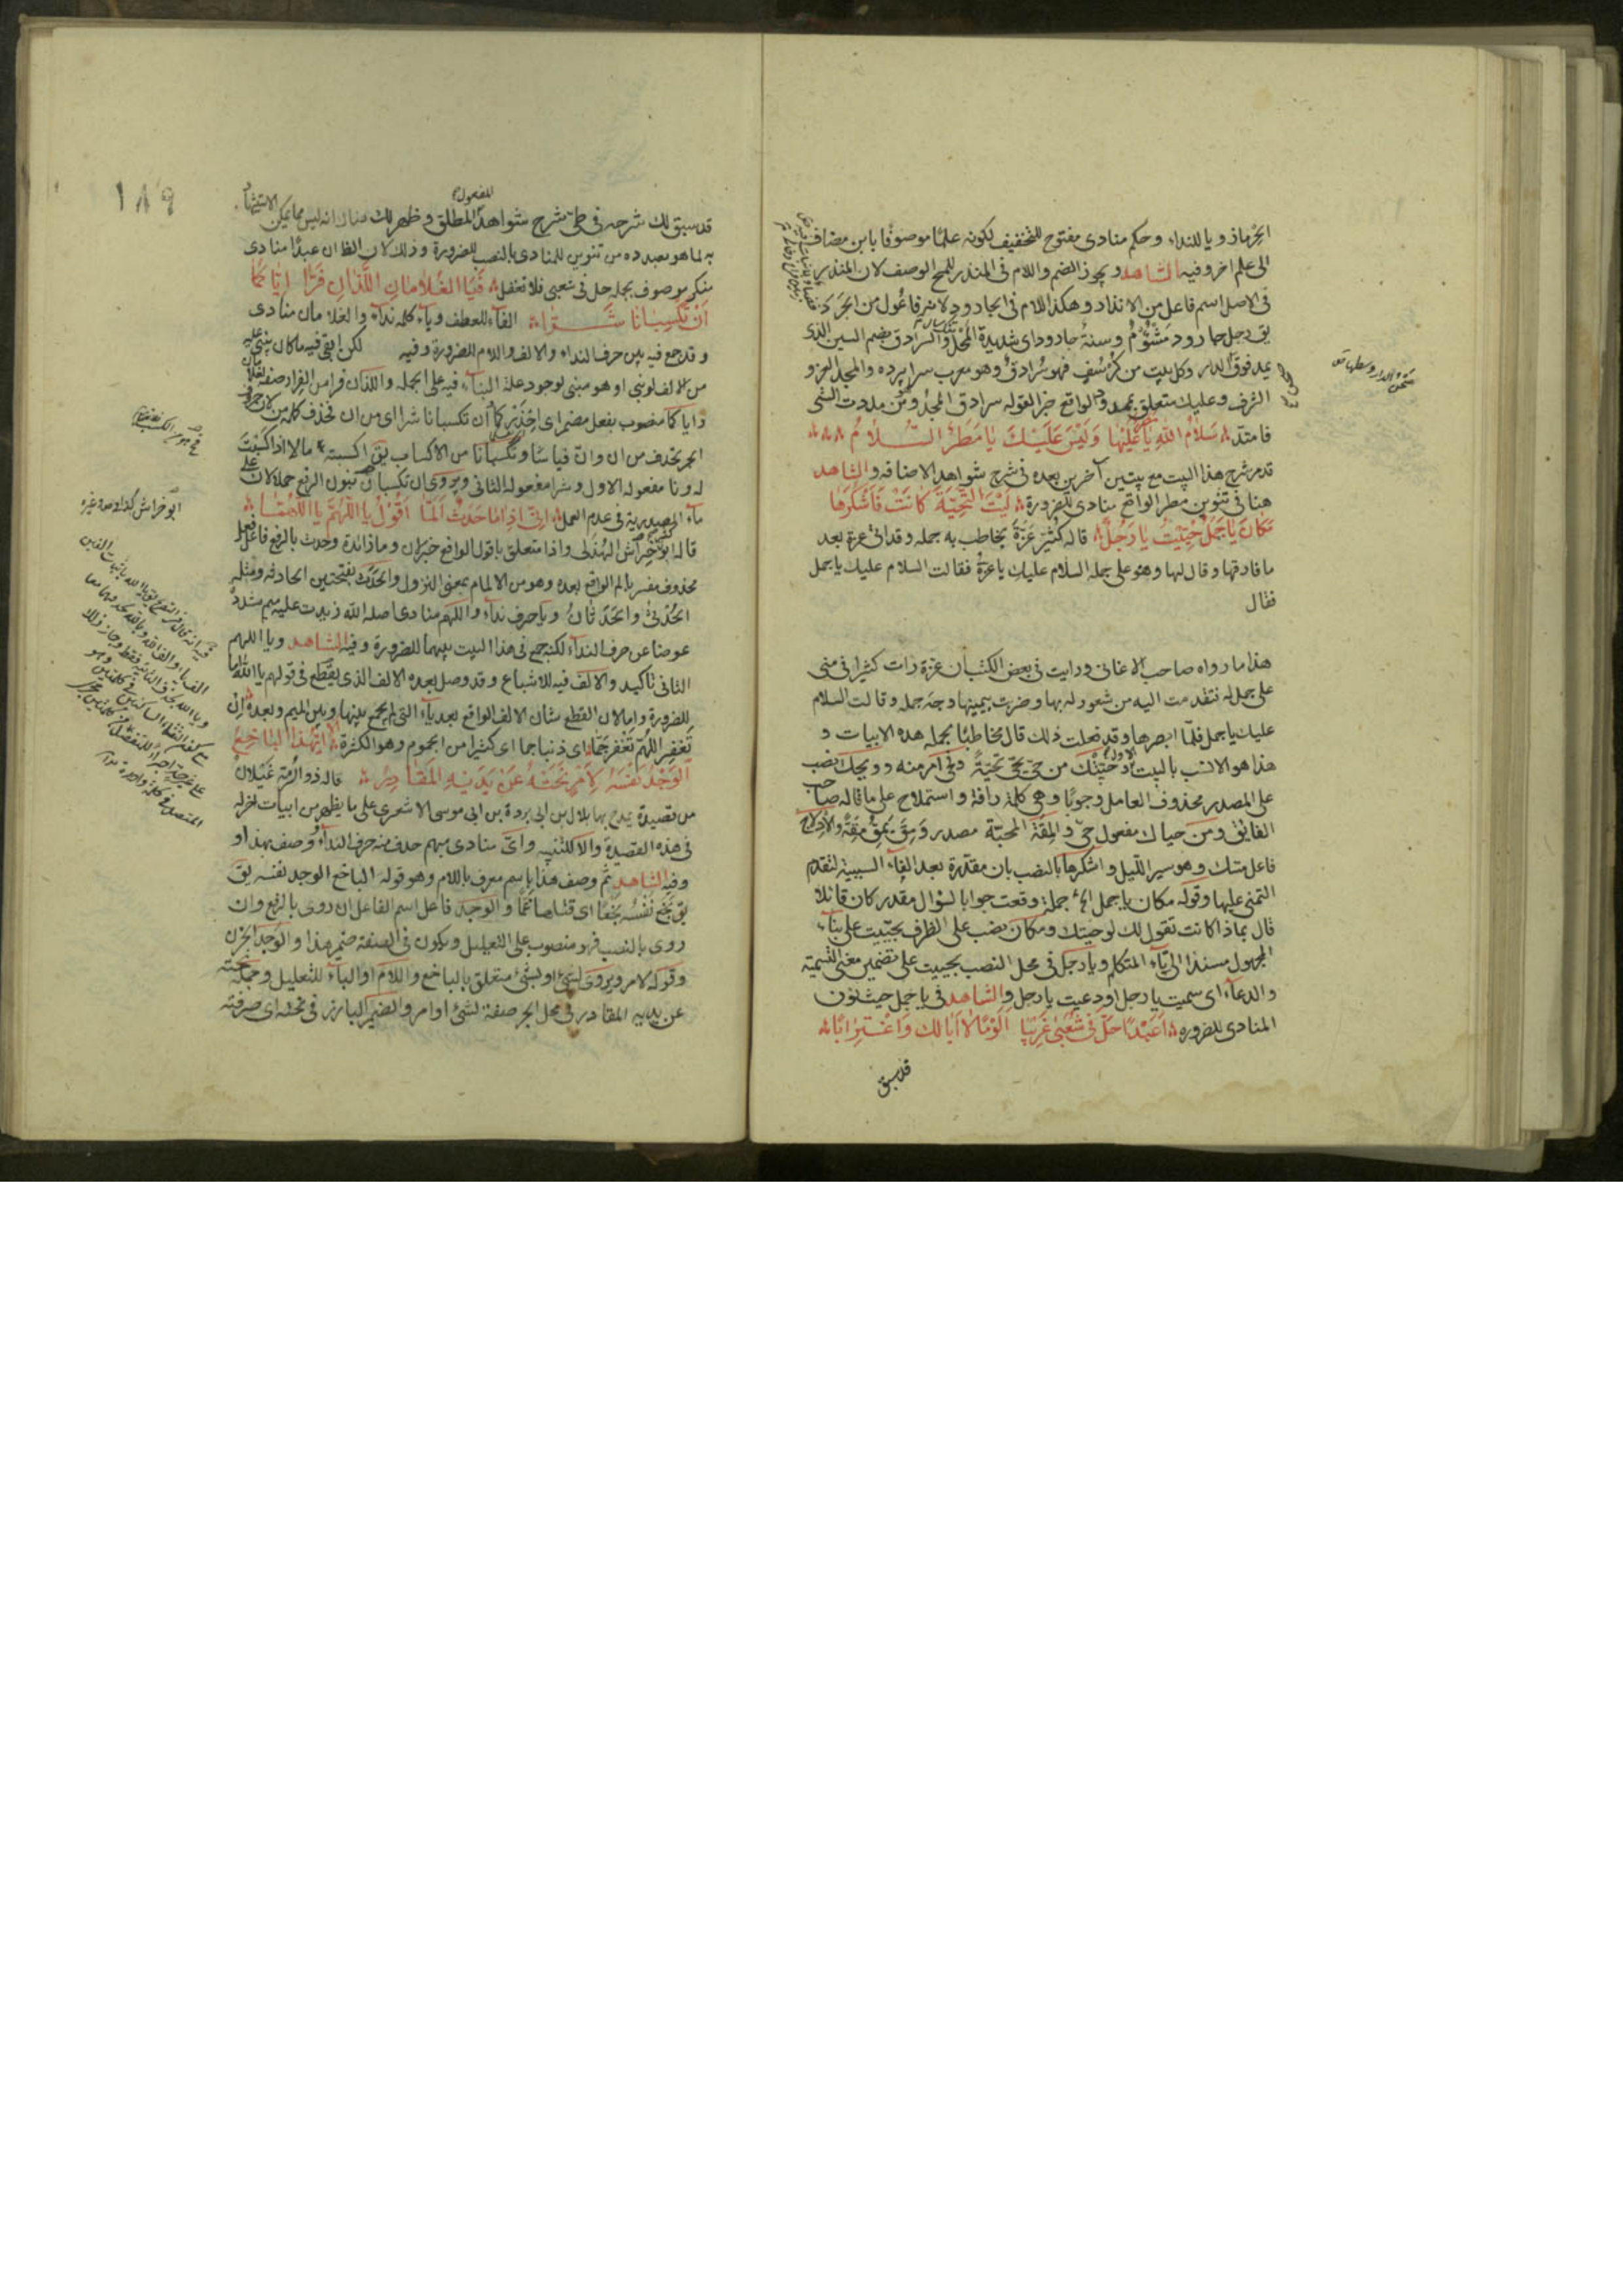 الجرماذ ويا للنداء وحكم منادى مفتوح للتخفيف لكونه علمًا موصوفًا بابن مضاف
الى علم اخر وفيه الشاهد ويجوز الضم واللام فى المنذر للمح الوصف لان المنذر
فى الاصل اسم فاعل من الانذار وهكذا اللام فى الجارود لانه فاعول من الجرد
يق رجل جارود مشؤم وسنة جارود اى شديدة المحل والسرادق بضم السين الذى
يمد فوق الدار وكل بيت من كرسف فهو سرادق وهو معرب سراپرده والمجد العز و
الشرف وعليك متعلق بممدود الواقع خبرا لقوله سرادق المجد ومن مددت الشى
فامتد سَلامُ اللهِ يَا مَطَرٌ عَلَيْهَا وَلَيْسَ عَلَيْكَ يَا مَطَرُ السَّلَامُ
قد مر شرح هذا البيت مع بيتين آخرين بعده فى شرح شواهد الاضافه والشاهد
هنا فى تنوين مطر الواقع منادى للضرورة لَيْتَ التَّحِيَّةَ كَانَتْ فَاَشْكُرَهَا
مَكَانَ يَا جَمَلٌ حُيِّيْتَ يَا رَجُلُ قاله كُثَيِّر عَزَّةَ يخاطب به جمله وقد اتى عزة بعد
ما فارقها وقال لها وهو على جمله السلام عليك يا عزة فقالت السلام عليك يا جمل
فقال
هذا ما رواه صاحب الاغانى ورايت فى بعض الكتب ان عزة رات كثيرا فى منى
على جمل له فتقدمت اليه من شعور له بها وضربت بيمينها وجه جمله وقالت السلام
عليك يا جمل فلمّا ابصرها وقد فعلت ذلك قال مخاطبًا بجمله هذه الابيات و
هذا هو الانسب بالبيت الاول حيّتك من حيّى يحيّى تحيّةً وحَىّ امر منه وويحك نصب
على المصدر محذوف العامل وجوبًا وهى كلمة رافة واستملاح على ما قاله صاحب
الفايق ومن حياك مفعول حىّ والمِقَة المحبّة مصدر وَمِقَ يَمِقُ مِقَةً والادلاج
فاعل مسّك وهو سير الليل واشكرها بالنصب بان مقدّرة بعد الفاء السببية لتقدم
التمنى عليها وقوله مكان يا جمل الخ جملة وقعت جوابا لسؤال مقدر كان قائلا
قال بماذا كانت تقول لك لو حيتك ومكان نصب على الظرف بحييت على بناء
المجهول مسندا الى تاء المتكلم ويا رجل فى محل النصب بحييت على تضمين معنى التسمية
والدعاء اى سميت يا رجل او دعيت يا رجل والشاهد فى يا جمل حيث نون
المنادى للضروره اَعَبْدًا حَلَّ فِى شُعَبَى غَرِيبًا اَلُؤْمًا لَا اَبَا لَكَ وَاغْتِرَابًا
قد سبق
١٨٩
قد سبق لك شرحه فى طى شرح شواهد المفعول المطلق وظهر لك هناك انه ليس مما يمكن الاستشهاد
به لما هو بصدده من تنوين المنادى بالنصب للضرورة وذلك لان الظ ان عبدًا منادى
منكر موصوف بجملة حل فى شعبى فلا تغفل فَيَا الغُلامَانِ اللَّذَانِ فَرَّا اِيَّاكُمَا
اَنْ تَكْسِبَانَا شَرًّا الفاء للعطف وياء كلمه نداء والغلامان منادى
وقد جمع فيه بين حرف النداء والالف واللام للضرورة وفيه لكن ابقى فيه ما كان يبنى عليه
من الالف لو بنى او هو مبنى لوجود علة البناء فيه على الجملة واللذان فرا من الفرار صفة للغلامان
واياكما منصوب بفعل مضمر اى احذركما ان تكسبانا شرا اى من ان تحذف كلمه من لان حرف
الجر يحذف من ان وانّ قياسًا وتكسبانا من الاكساب يق اكسبته مالا اذا كسبت
له ونا مفعوله الاول وشرا مفعوله الثانى ويروى ان تكسبان بنون الرفع حملا لان على
ماء المصدرية فى عدم العمل اِنِّى اِذَا مَا حَدَثٌ اَلَمَّا اَقُوْلُ يَا اللّٰهُمَّ يَا اللّٰهُمَّا
قاله ابو خراش الهُذَلى واذا متعلق باقول الواقع خبر لان وما زائدة وحدث بالرفع فاعل لفعل
محذوف مفسر بالم الواقع بعده وهو من الالمام بمعنى النزول والحدث بفتحتين الحادثه ومثله
الحُدثى والحَدَثَان ويا حرف نداء واللهم منادى اصله الله زيدت عليه ميم مشددة
عوضا عن حرف النداء لكنه جمع فى هذا البيت بينهما للضرورة وفيه الشاهد ويا اللهم
الثانى تاكيد والالف فيه للاشباع وقد وصل بعده الالف الذى يقطع فى قولهم يا الله اما
للضرورة واما لان القطع شان الالف الواقع بعد ياء التى لم يجمع بينها وبين الميم وبعده اِنْ
تَغْفِرِ اللّٰهُمَّ تَغْفِرْ جَمًّا اى ذنبا جما اى كثيرا من الجموم وهو الكثرة اَلا اَيُّهٰذَا البَاخِعُ
الوَجْدُ نَفْسَهُ لِاَمْرٍ نَحَتْهُ عَنْ يَدَيْهِ المَقَادِرُ قاله ذو الرُمّة غَيلان
من قصيدة يمدح بها بلال بن ابى بردة بن ابى موسى الاشعرى على ما يظهر من ابيات اخر له
فى هذه القصيدة والا للتنبيه واىّ منادى مبهم حذف منه حرف النداء وصف بهذا و
وفيه الشاهد ثم وصف هذا باسم معرف باللام وهو قوله الباخع الوجد نفسه يق
يق بَخَعَ نَفْسَهُ بَخْعًا اى قتلها غمًّا والوجد فاعل اسم الفاعل ان روى بالرفع وان
روى بالنصب فهو منصوب على التعليل ويكون فى الصفة ضمير هذا والوجد الحزن
وقوله لامر ويروى لشىء او بشىء متعلق بالباخع واللام او الباء للتعليل وجملة نحته
عن يديه المقادر فى محل الجر صفة لشىء او امر والضمير البارز فى نحته اى صرفته